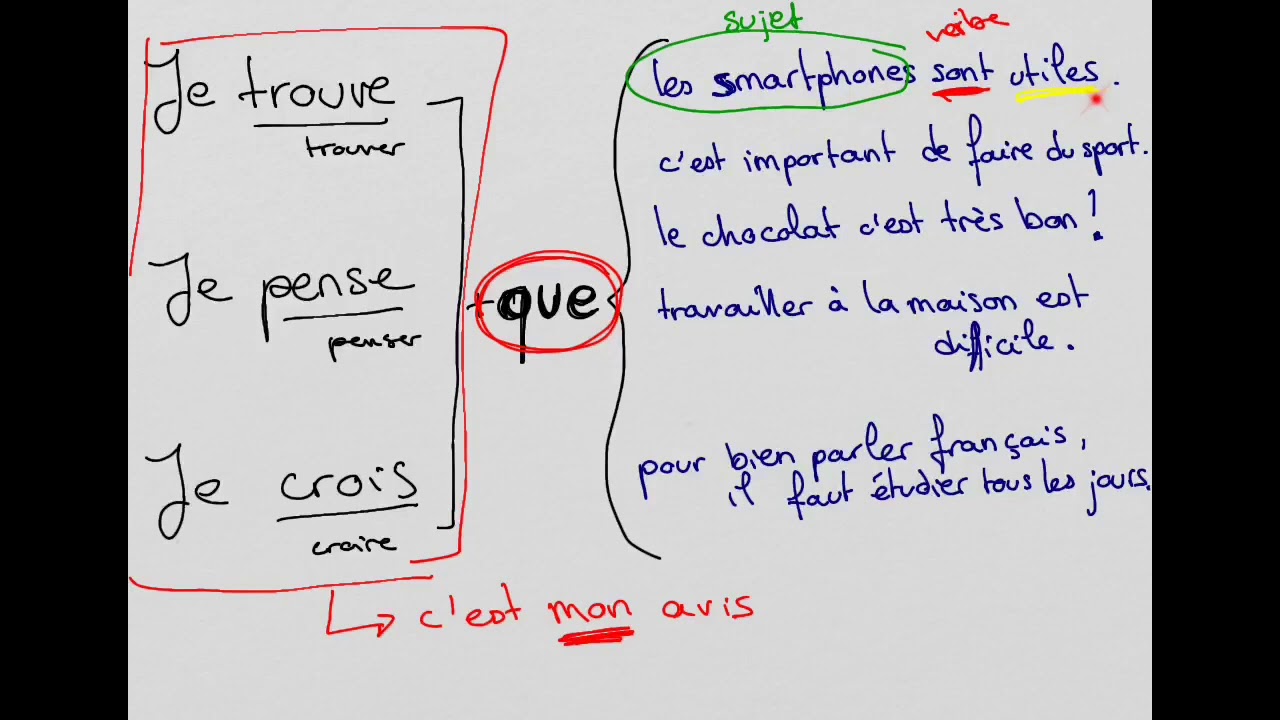 Je trouve
trouver
Je pense
penser
Je crois
croire
+ que
sujet
verbe
les smartphones sont utiles.
c'est important de faire du sport.
le chocolat c'est très bon !
travailler à la maison est
difficile.
pour bien parler français,
il faut étudier tous les jours.
c'est mon avis